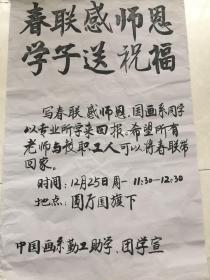 春联感师恩
学子送祝福
写春联感师恩,国画系同学
以专业所学来回报。希望所有
老师与校职工人可以将春联带
回家。
时间:12月25日周一 11:30-12:30
地点:图厅国旗下
中国画系勤工助学、团学宣